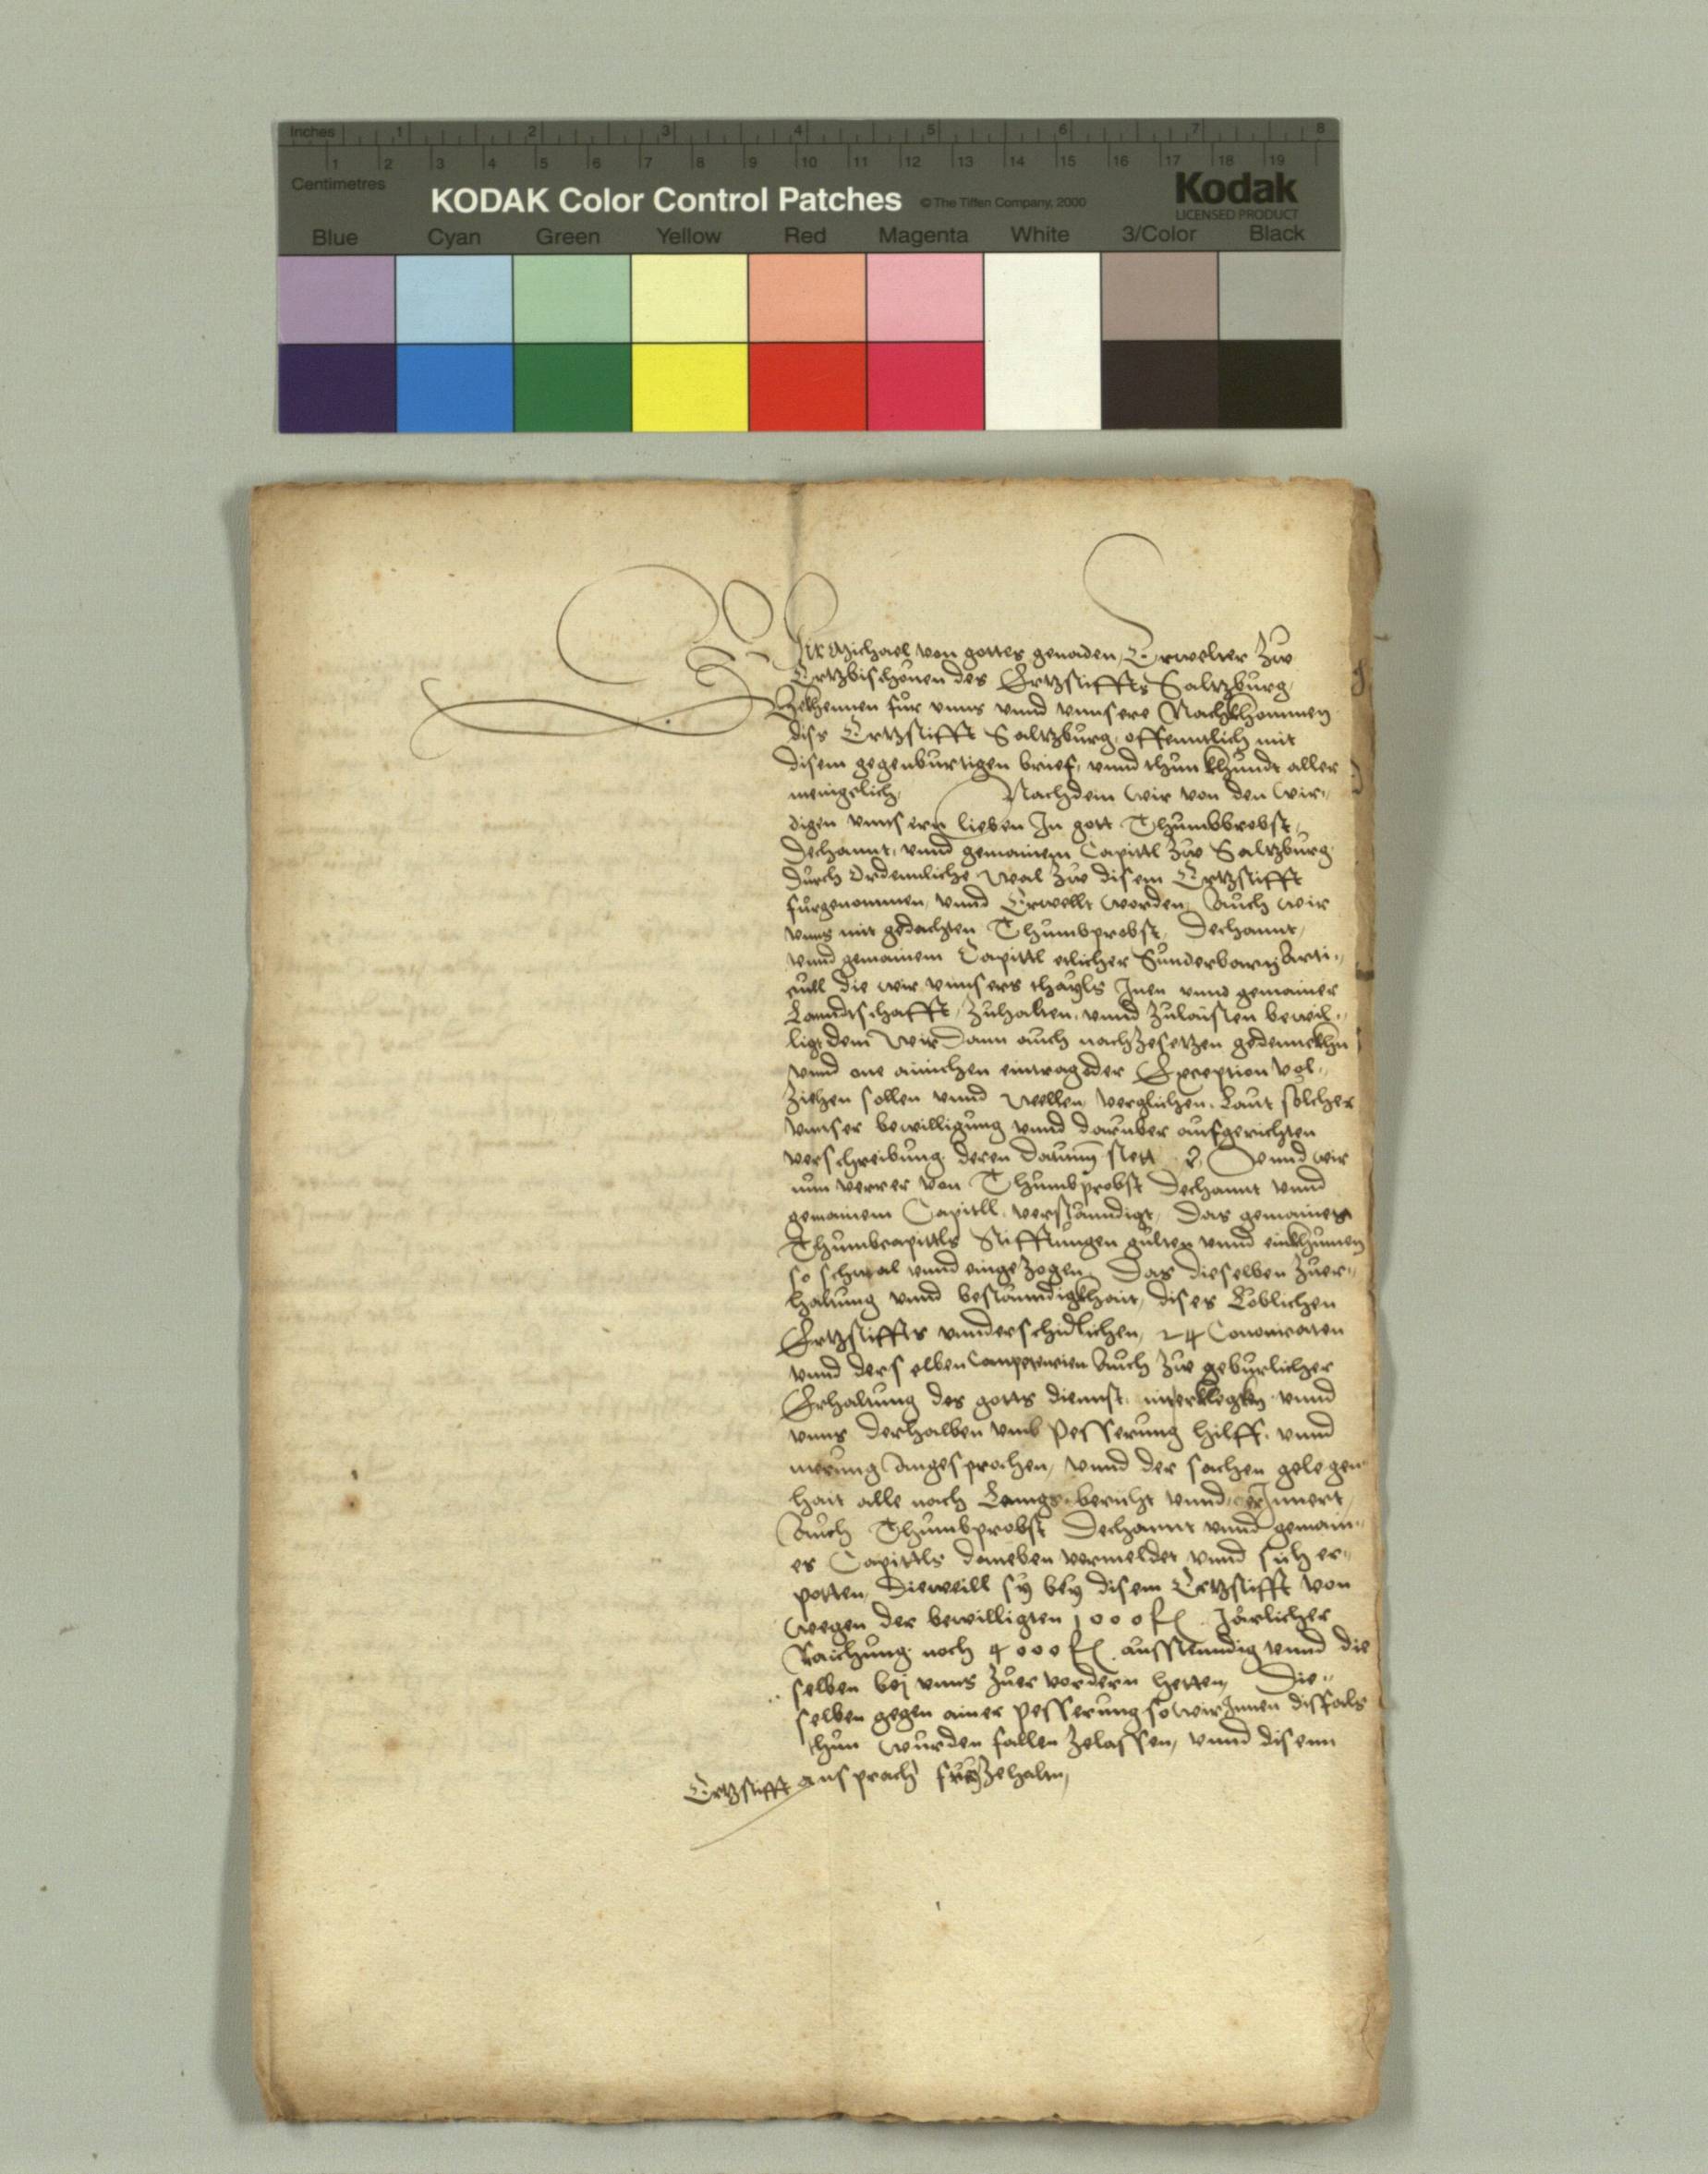 Inches 1 2 3 4 5 6 7 8
1 2 3 4 5 6 7 8 9 10 11 12 13 14 15 16 17 18 19
Centimetres
KODAK Color Control Patches © The Tiffen Company, 2000 Kodak
LICENSED PRODUCT
Blue Cyan Green Yellow Red Magenta White 3/Color Black
Wir Michael von gottes genaden, Erwelter Zw
Ertzbischouen des Ertzstiffts Saltzburg,
Bekhennen für vnns vnnd vnnsere Nachkhommen
diss Ertzstifft Saltzburg, offenntlich mit
disem gegenburtigen brief, vnnd thun khundt aller
menigelich, Nachdem wir von den wir„
digen vnnsern lieben In gott Thumbbrobst,
Dechannt, vnnd gemainem Capittl Zw Saltzburg
durch Ordennliche Wal Zw disem Ertzstifft
furgenommen, vnnd Erwellt worden, Auch wir
vnns mit gedachten Thumbprobst, Dechannt,
vnnd gemainem Capittl etlicher Sunderbarn Arti„
cull die wir vnnsers thayls Inen vnnd gemainer
Lanndtschafft, Zuhalten, vnnd Zulaisten bewil„
ligt dem Wir Dann auch nachZesetzen gedennckhn
vnnd one ainichen eintrag oder Exception vol„
Ziehen sollen vnnd Wellen, verglichen, Laut solcher
vnnser bewilligung vnnd darüber aufgerichten
verschreibung deren datum stett Vnnd wir
nun verrer von Thumbprobst Dechannt vnnd
gemainem Capitll, verstanndigt, Das gemaines
Thumbcapittls Stifftungen gülten vnnd einkhumen
so schmal vnnd eingeZogen, Das dieselben Zuer„
haltung vnnd bestanndigkhait, dises Loblichen
Ertzstiffts vnnderschidlichen, 24 Canonicaten
vnnd derselben Auch Zw geburlicher
Erhaltung des gotts diennst, vnnd
vnns derhalben vmb Pesserung hilff, vnnd
merung Angesprochen, vnnd der sachen gelegen„
hait alle nach Lenngs bericht vnnd erJnnert,
Auch Thumbprobst Dechannt vnnd gemain„
es Capittls daneben vermeldet vnnd sich er„
potten, Dieweill sy bey disem Ertzstifft von
wegen der bewilligten 1000 fl. Järlicher
Raichung noch 4000 fl. ausstenndig vnnd die
selben bej vnns Zuer vordern hetten, Die„
selben gegen ainer pesserung so wir Jnnen dissfals
thun wurden fallen Zelassen, vnnd disenn
Ertzstifft ansprach Zehaltn,